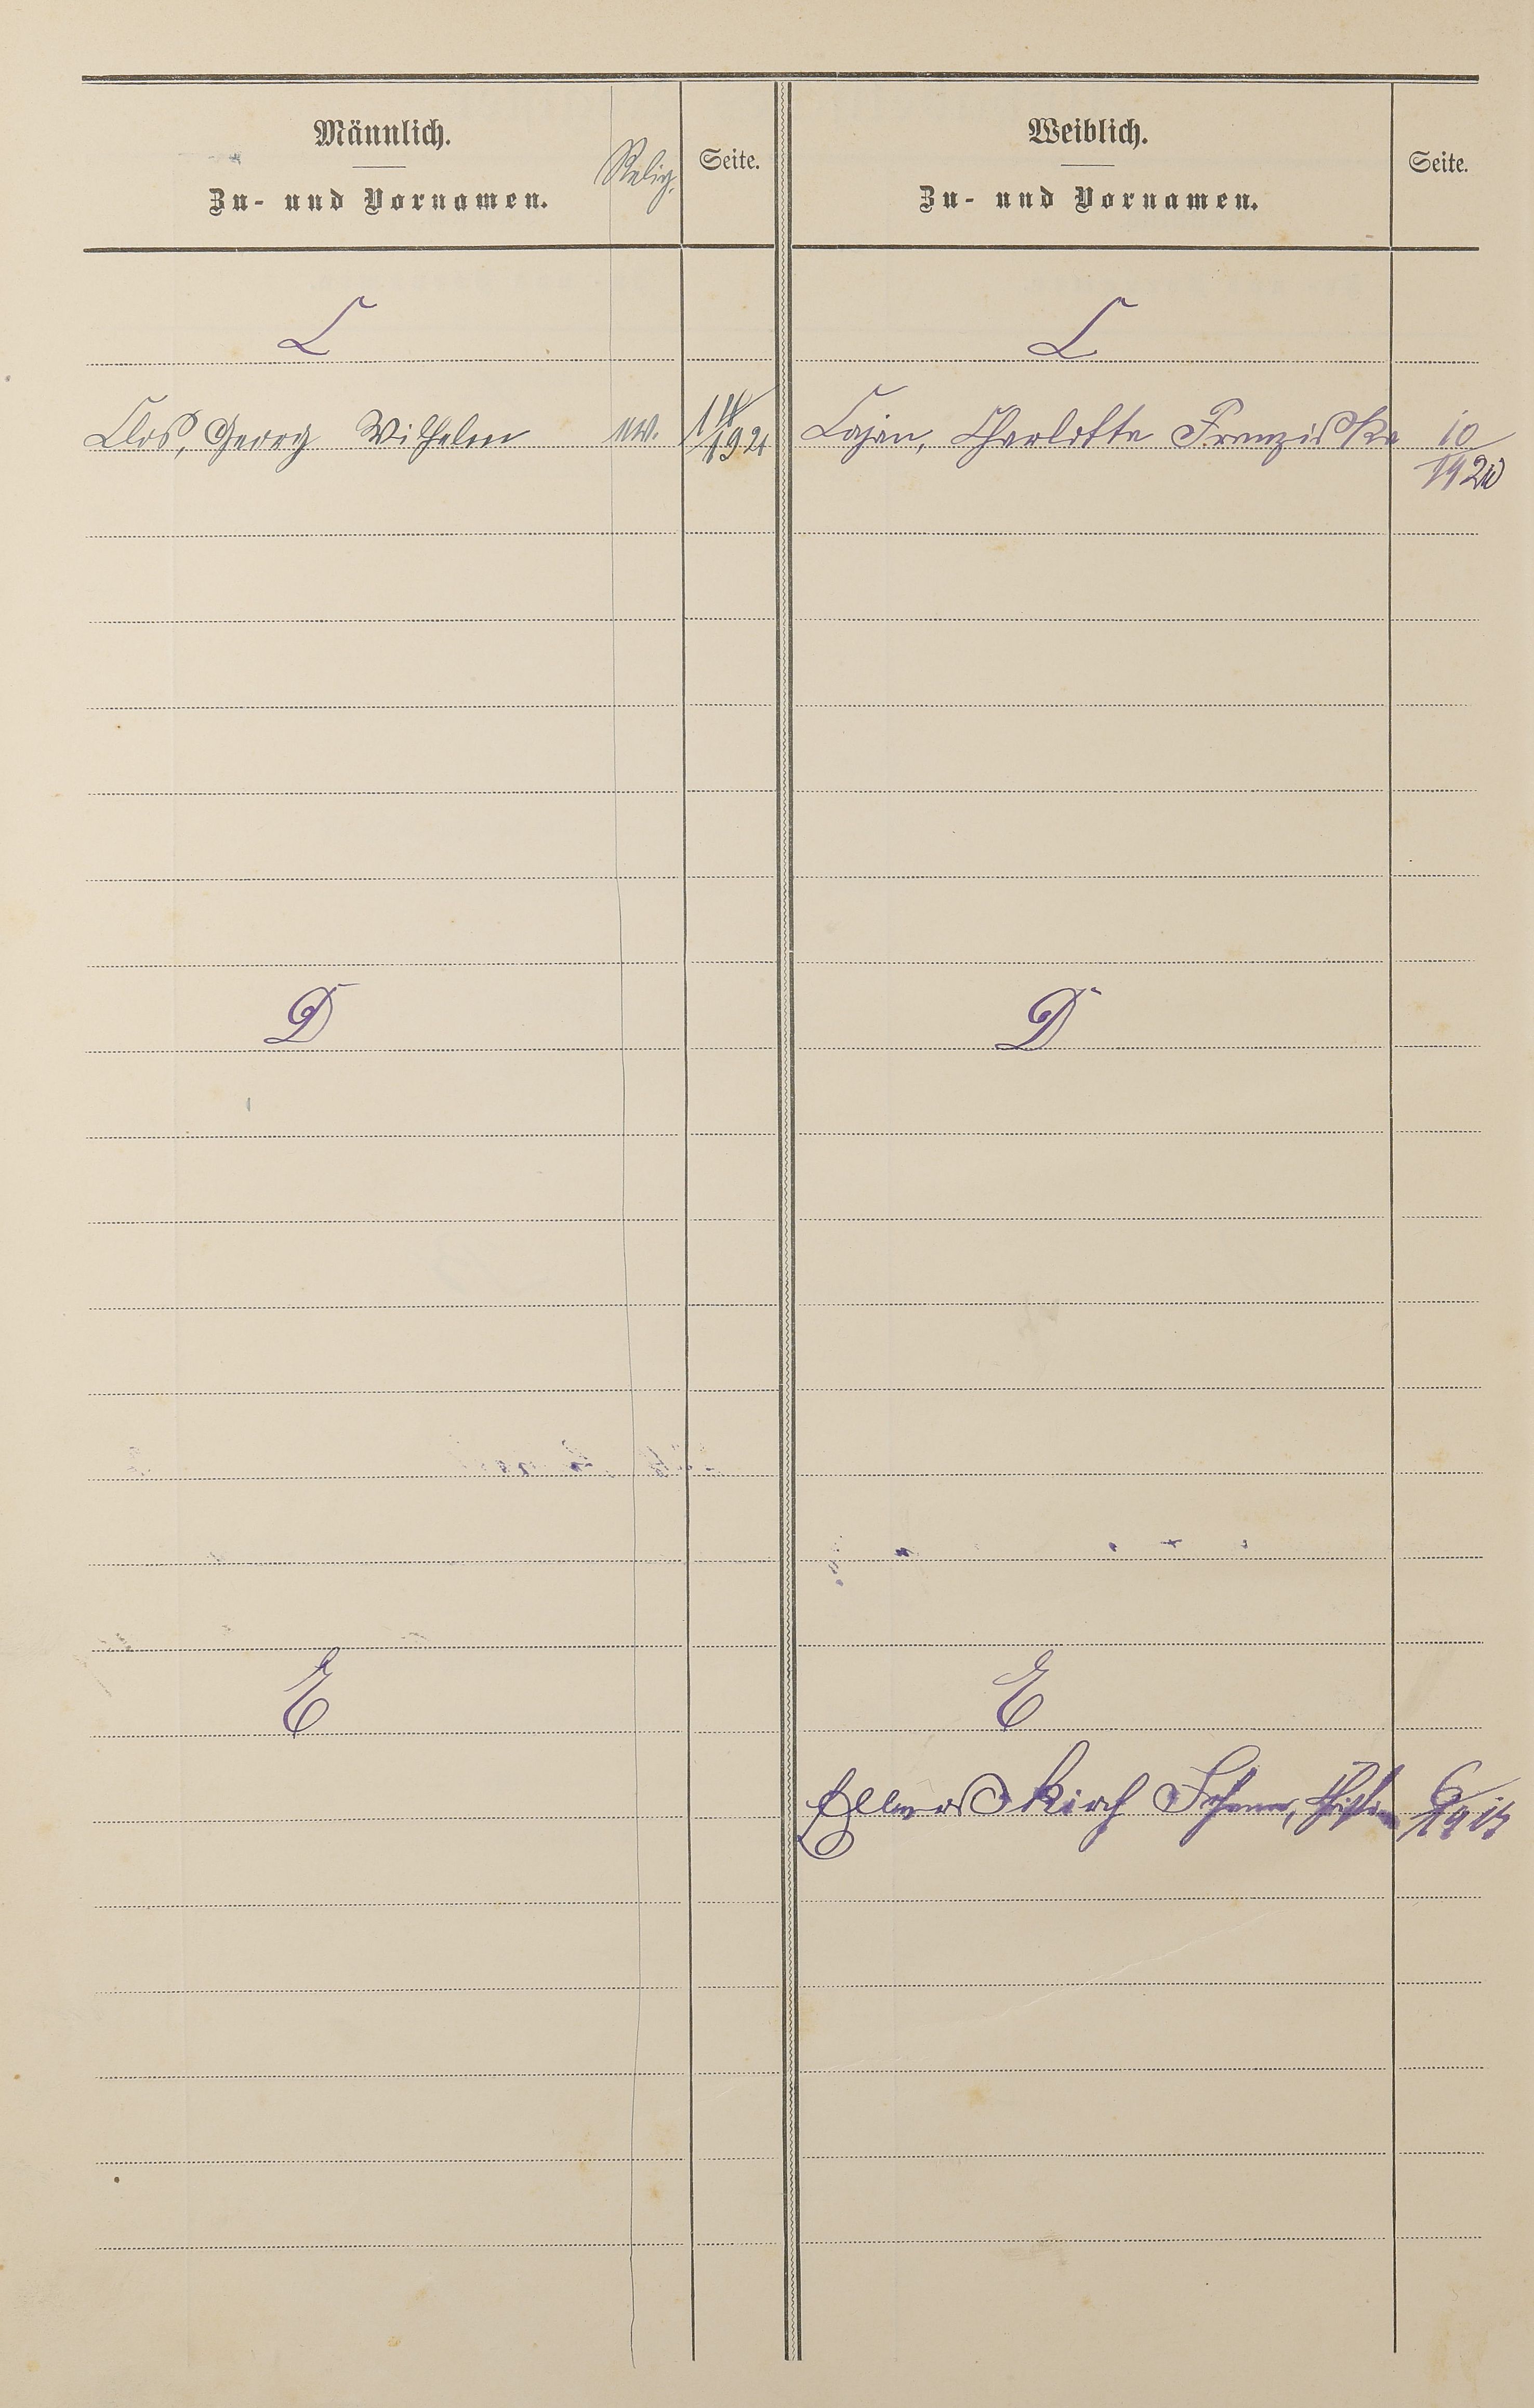 Männlich.
Zu- und Vornamen.
Relig.
Seite.
Weiblich.
Zu- und Vornamen.
Seite.
C
C
Clos, Georg Wilhelm ev. 14/1921
Cajan, Charlotte Franziska 10/1920
D
D
E
E
Ellerskirch 6/1915